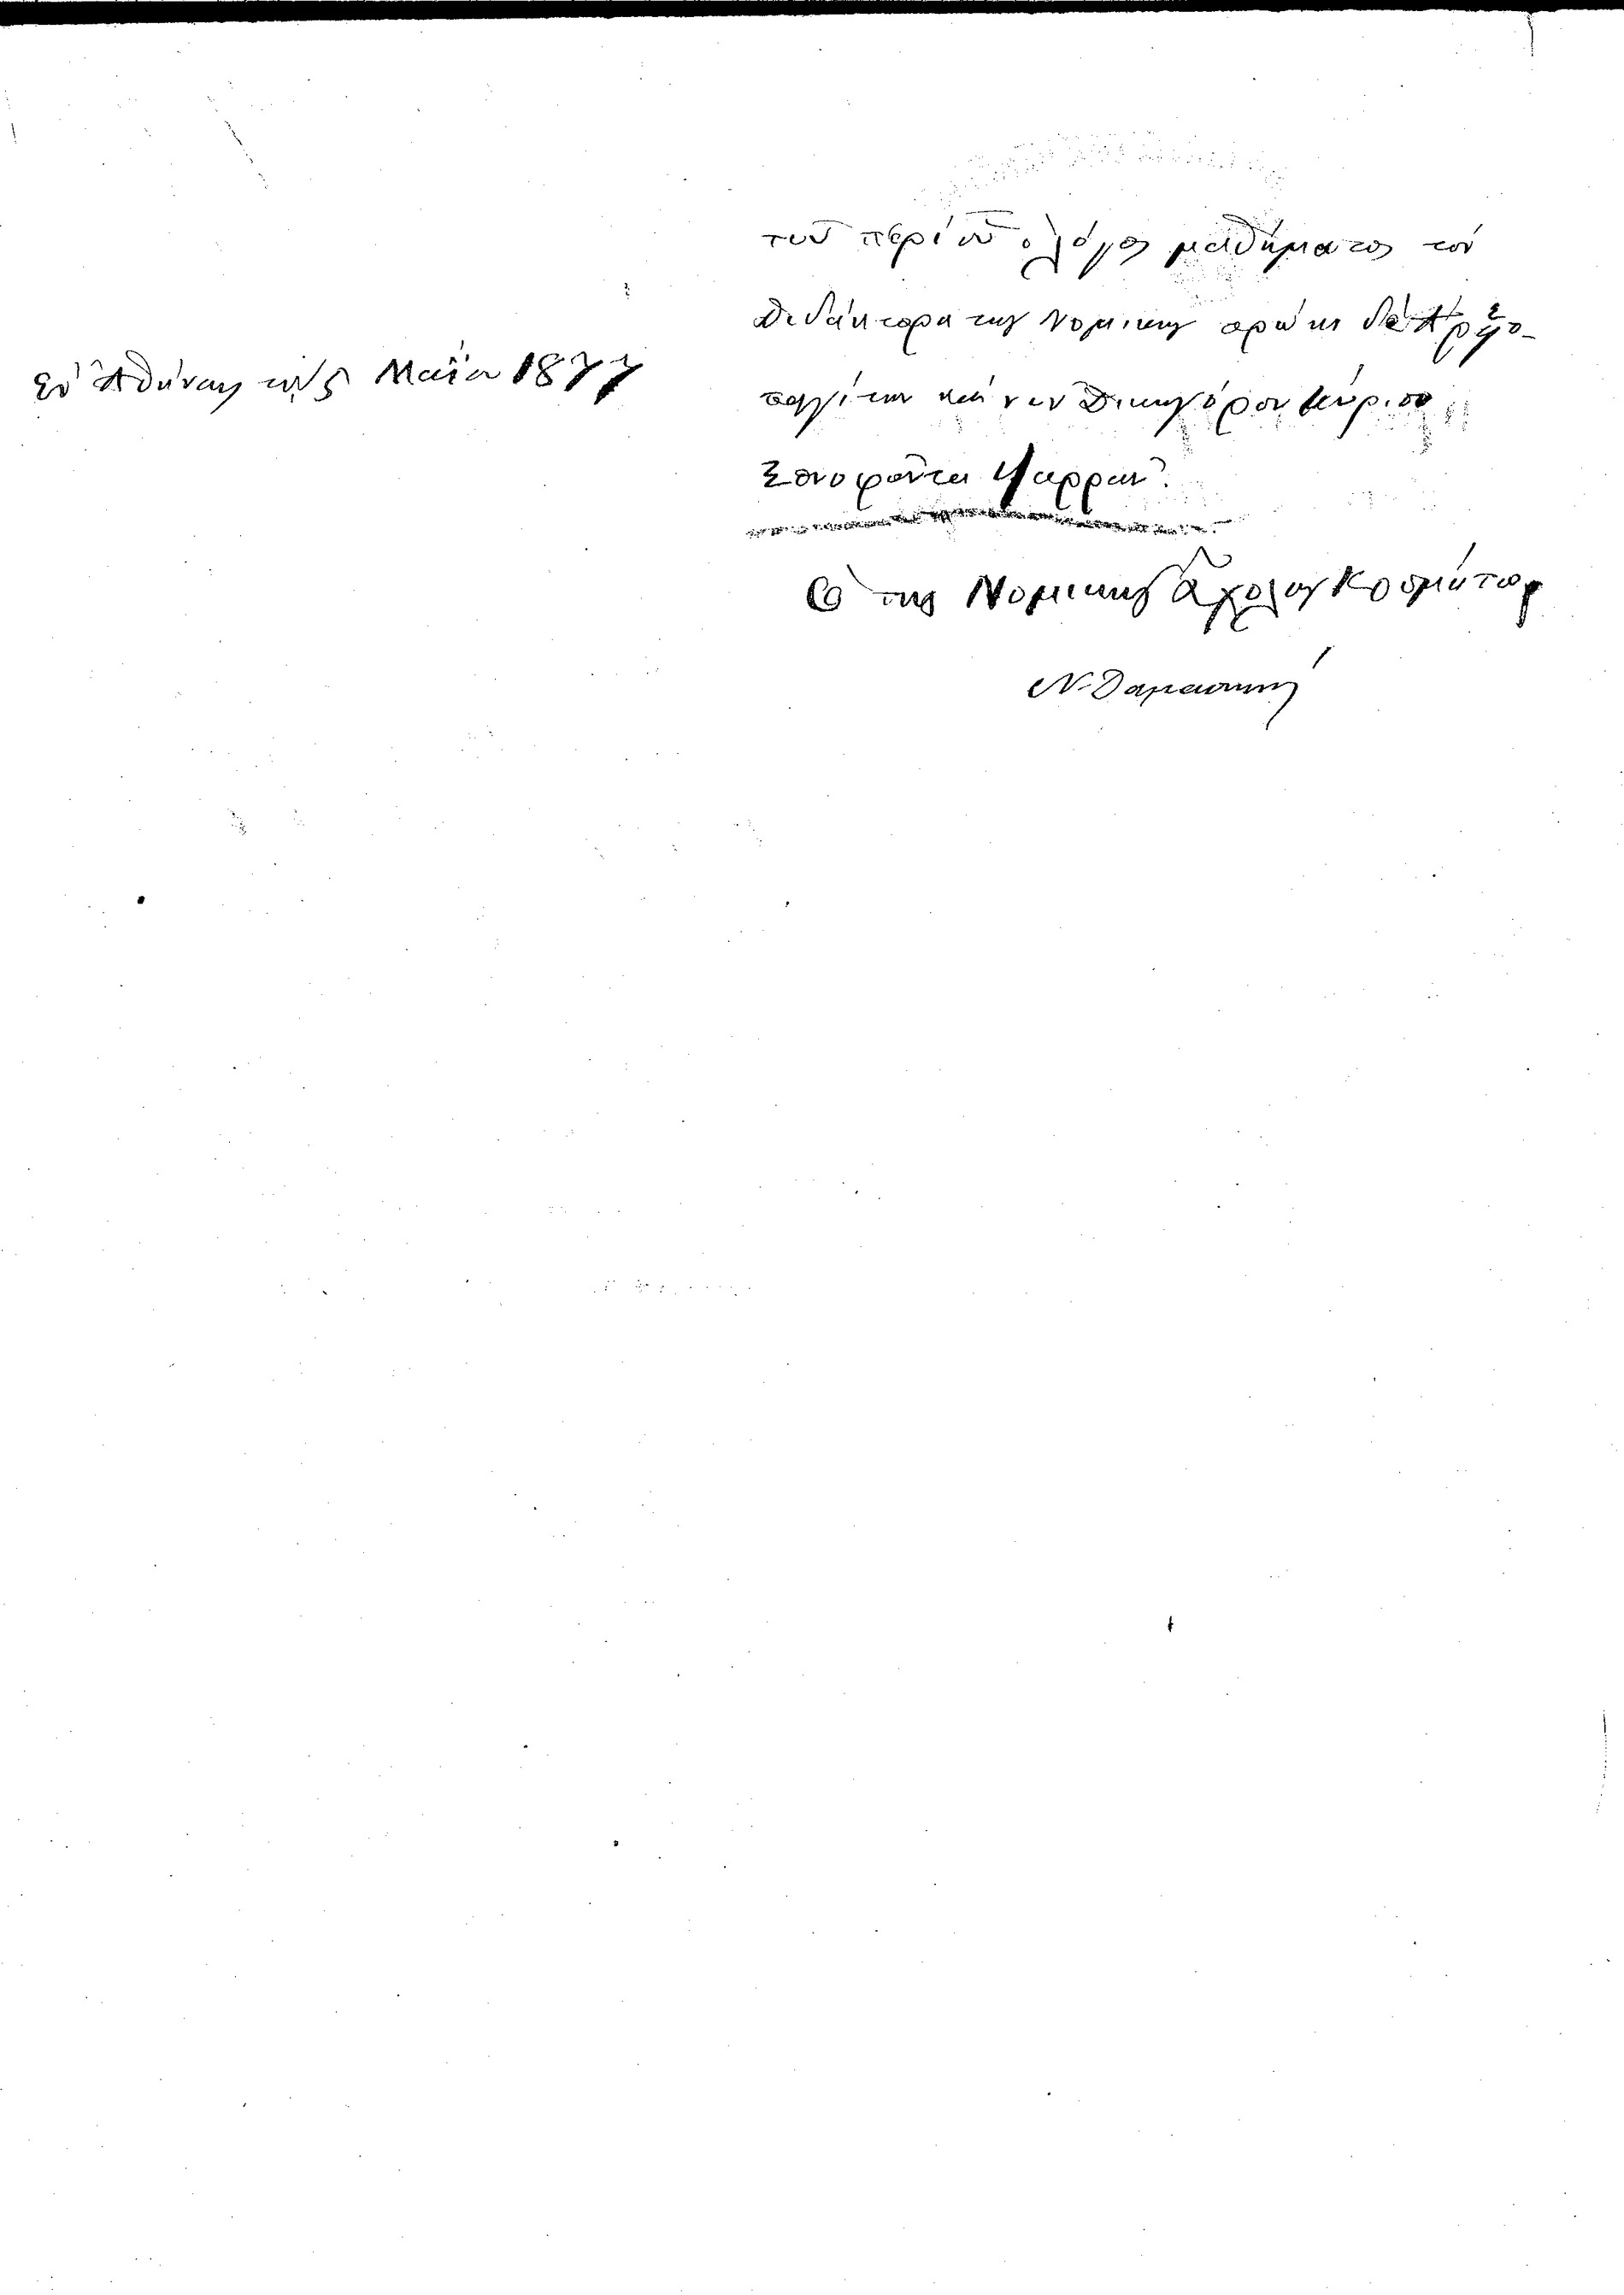 τοῦ περὶ οὗ ὁ λόγος μαθήματος τὸν
διδάκτορα τῆς Νομικῆς
καὶ τὸν Δικηγόρον Κύριον
Ξενοφῶντα Ψαρρᾶν.
Ἐν Ἀθήναις τῇ 5 Μαΐου 1877
Ὁ τῆς Νομικῆς Σχολῆς Κοσμήτωρ
Ν. Δαμασκηνός